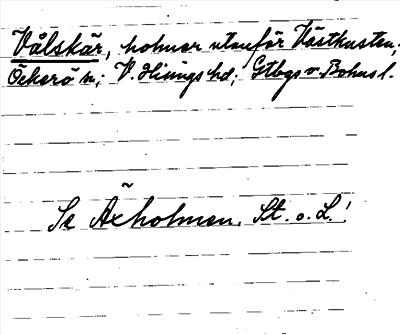 Vålskär, holmar utanför Västkusten;
Öckerö sn; V. Hisings hd; Gtbgs o. Bohusl.
Se Äxholmen, St. o. L.!